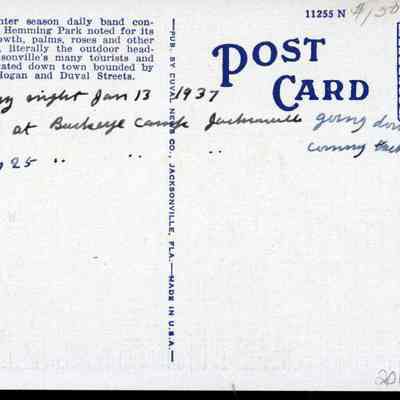 nter season daily band con-
Hemming Park noted for its
owth, palms, roses and other
, literally the outdoor head-
sonville's many tourists and
ated down town bounded by
Hogan and Duval Streets.
11255 N $1,50
POST
CARD
night Jan 13 1937
at Buckeye Camp Jacksonville going dow
25 .. .. .. coming back
—PUB. BY DUVAL NEWS CO., JACKSONVILLE, FLA.—MADE IN U.S.A.—